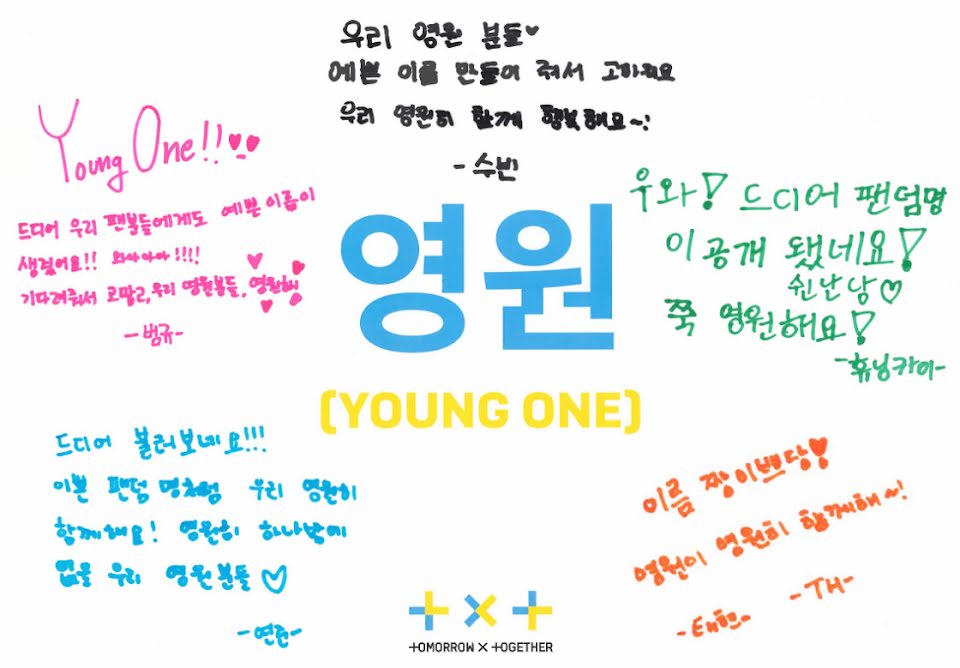 우리 영원 분들♥
예쁜 이름 만들어 줘서 고마워요
우리 영원히 함께 행복해요~!
-수빈
Young One!!
드디어 우리 팬분들에게도 예쁜 이름이
생겼어요!! 와아아아!!!!
기다려줘서 고맙고, 우리 영원분들, 영원해
-범규-
우와! 드디어 팬덤명
이 공개 됐네요!
쉰난당♡
쭉 영원해요!
-휴닝카이-
영원
(YOUNG ONE)
드디어 불러보네요!!!
이쁜 팬덤 명처럼 우리 영원히
함께해요! 영원히 하나밖에
없을 우리 영원분들♡
-연준-
이름 짱이쁘당♥
영원이 영원히 함께해~!
-태현-
-TH-
TOMORROW X TOGETHER